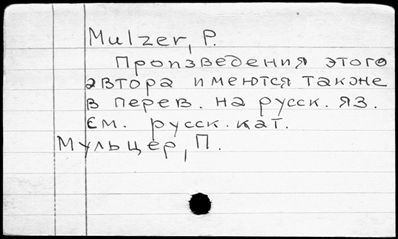 Mulzer, P.
Произведения этого
автора имеются также
в перев. на русск. яз.
См. русск. кат.
Мульцер, П.